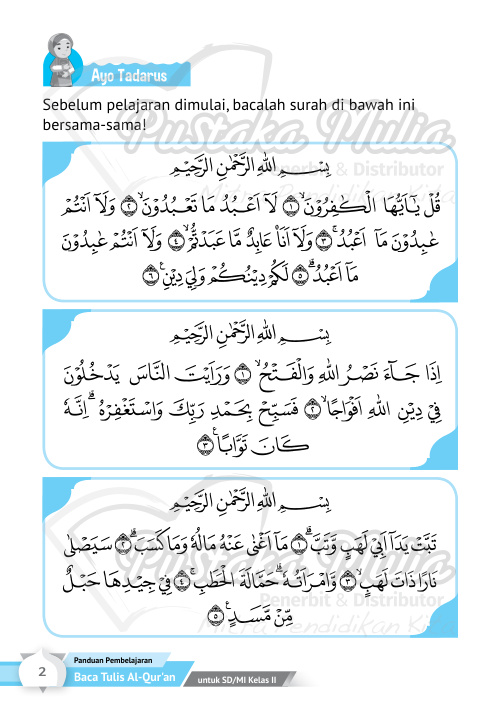 Ayo Tadarus
Sebelum pelajaran dimulai, bacalah surah di bawah ini
bersama-sama!
Pustaka Mulia
Penerbit & Distributor
Mitra Pendidikan Kita
بِسْمِ اللّٰهِ الرَّحْمٰنِ الرَّحِيْمِ
قُلْ يٰٓاَيُّهَا الْكٰفِرُوْنَۙ ۝١ لَآ اَعْبُدُ مَا تَعْبُدُوْنَۙ ۝٢ وَلَآ اَنْتُمْ
عٰبِدُوْنَ مَآ اَعْبُدُۚ ۝٣ وَلَآ اَنَا۠ عَابِدٌ مَّا عَبَدْتُّمْۙ ۝٤ وَلَآ اَنْتُمْ عٰبِدُوْنَ
مَآ اَعْبُدُۗ ۝٥ لَكُمْ دِيْنُكُمْ وَلِيَ دِيْنِࣖ ۝٦
بِسْمِ اللّٰهِ الرَّحْمٰنِ الرَّحِيْمِ
اِذَا جَاۤءَ نَصْرُ اللّٰهِ وَالْفَتْحُۙ ۝١ وَرَاَيْتَ النَّاسَ يَدْخُلُوْنَ
فِيْ دِيْنِ اللّٰهِ اَفْوَاجًاۙ ۝٢ فَسَبِّحْ بِحَمْدِ رَبِّكَ وَاسْتَغْفِرْهُۗ اِنَّهٗ
كَانَ تَوَّابًاࣖ ۝٣
بِسْمِ اللّٰهِ الرَّحْمٰنِ الرَّحِيْمِ
تَبَّتْ يَدَآ اَبِيْ لَهَبٍ وَّتَبَّۗ ۝١ مَآ اَغْنٰى عَنْهُ مَالُهٗ وَمَا كَسَبَۗ ۝٢ سَيَصْلٰى
نَارًا ذَاتَ لَهَبٍۙ ۝٣ وَّامْرَاَتُهٗۗ حَمَّالَةَ الْحَطَبِۚ ۝٤ فِيْ جِيْدِهَا حَبْلٌ
مِّنْ مَّسَدٍࣖ ۝٥
Pustaka Mulia
Penerbit & Distributor
Mitra Pendidikan Kita
2
Panduan Pembelajaran
Baca Tulis Al-Qur'an
untuk SD/MI Kelas II